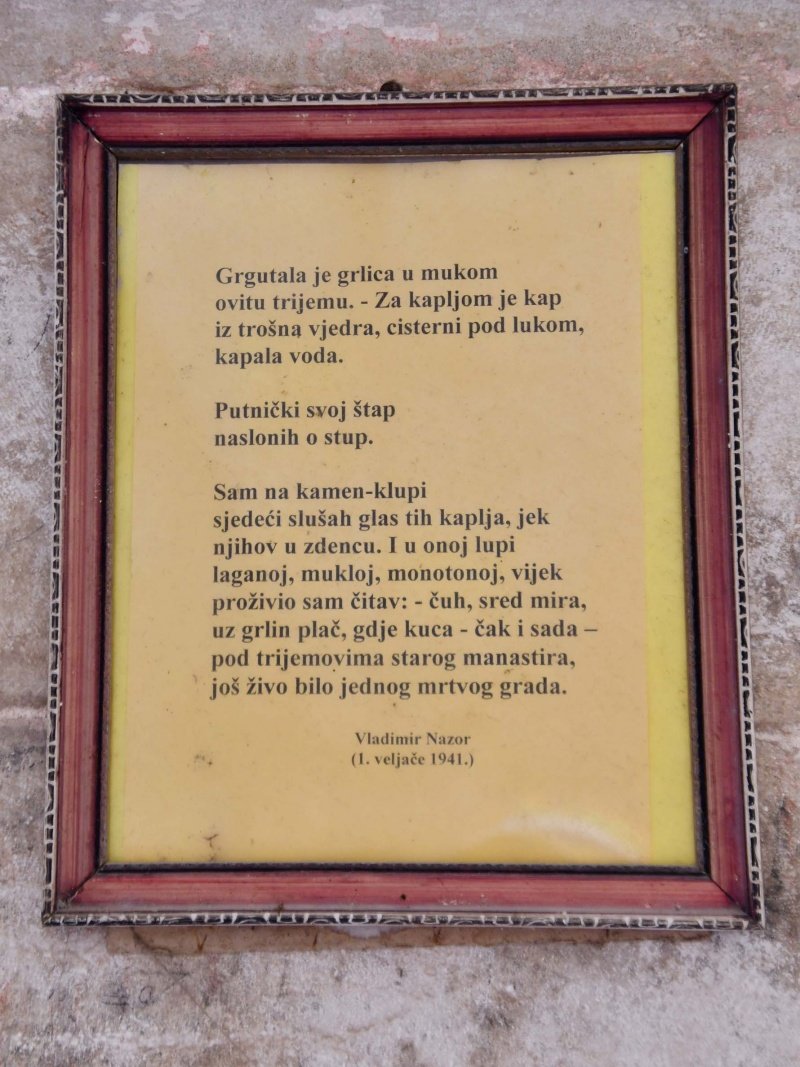 Grgutala je grlica u mukom
ovitu trijemu. - Za kapljom je kap
iz trošna vjedra, cisterni pod lukom,
kapala voda.
Putnički svoj štap
naslonih o stup.
Sam na kamen-klupi
sjedeći slušah glas tih kaplja, jek
njihov u zdencu. I u onoj lupi
laganoj, mukloj, monotonoj, vijek
proživio sam čitav: - čuh, sred mira,
uz grlin plač, gdje kuca - čak i sada –
pod trijemovima starog manastira,
još živo bilo jednog mrtvog grada.
Vladimir Nazor
(1. veljače 1941.)